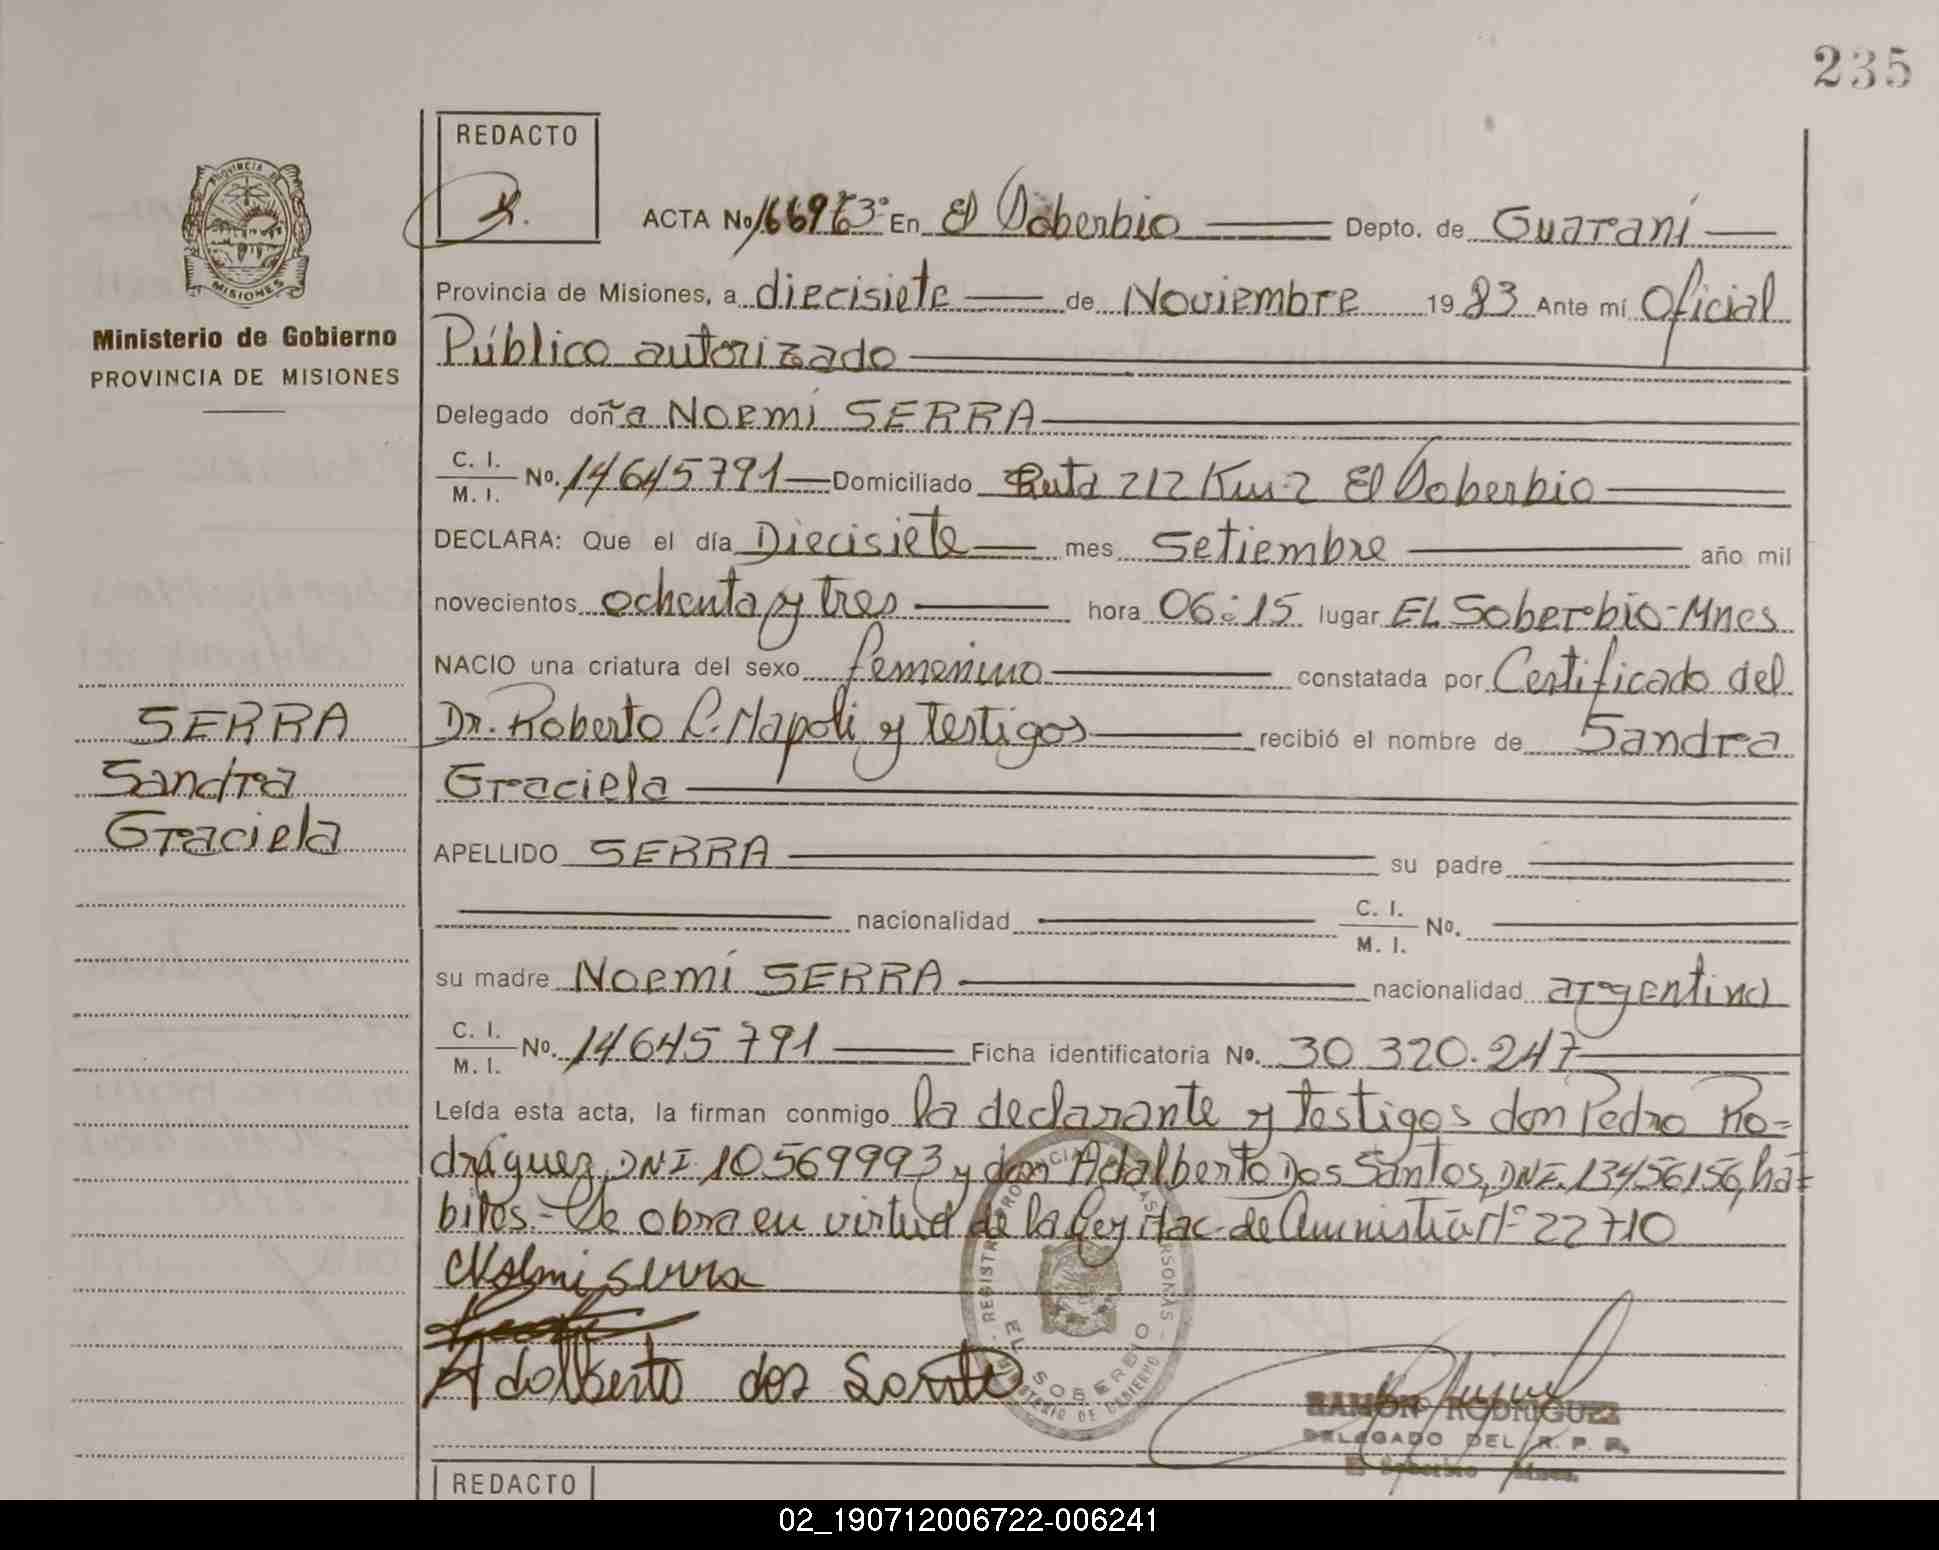 235
REDACTO
PROVINCIA DE
MISIONES
Ministerio de Gobierno
PROVINCIA DE MISIONES
ACTA No En El Soberbio Depto. de Guaraní
Provincia de Misiones, a diecisiete de Noviembre 1983 Ante mí Oficial
Público autorizado
Delegado doña NOEMÍ SERRA
C. I. M. I. No. 14645791 Domiciliado Ruta 212 Km 2 El Soberbio
DECLARA: Que el día Diecisiete mes Setiembre año mil
novecientos ochenta y tres hora 06:15 lugar EL Soberbio-Mnes
NACIO una criatura del sexo femenino constatada por Certificado del
Dr. Roberto C. Napoli y testigos recibió el nombre de Sandra
Graciela
SERRA
Sandra
Graciela
APELLIDO SERRA su padre
nacionalidad C. I. M. I. No.
su madre NOEMÍ SERRA nacionalidad argentina
C. I. M. I. No. 14645791 Ficha identificatoria No. 30 320.247
Leída esta acta, la firman conmigo la declarante y testigos don Pedro Ro=
dríguez, DNI. 10569993 y don Adalberto Dos Santos, DNI. 13456156, há=
biles.- Se obra en virtud de la Ley Nac. de Amnistía Nº 22710
Noemi Serra
Adalberto dos Santo
EL SOBERBIO
RAMON RODRIGUEZ
DELEGADO DEL R. P. P.
El Soberbio Mnes.
REDACTO
02_190712006722-006241